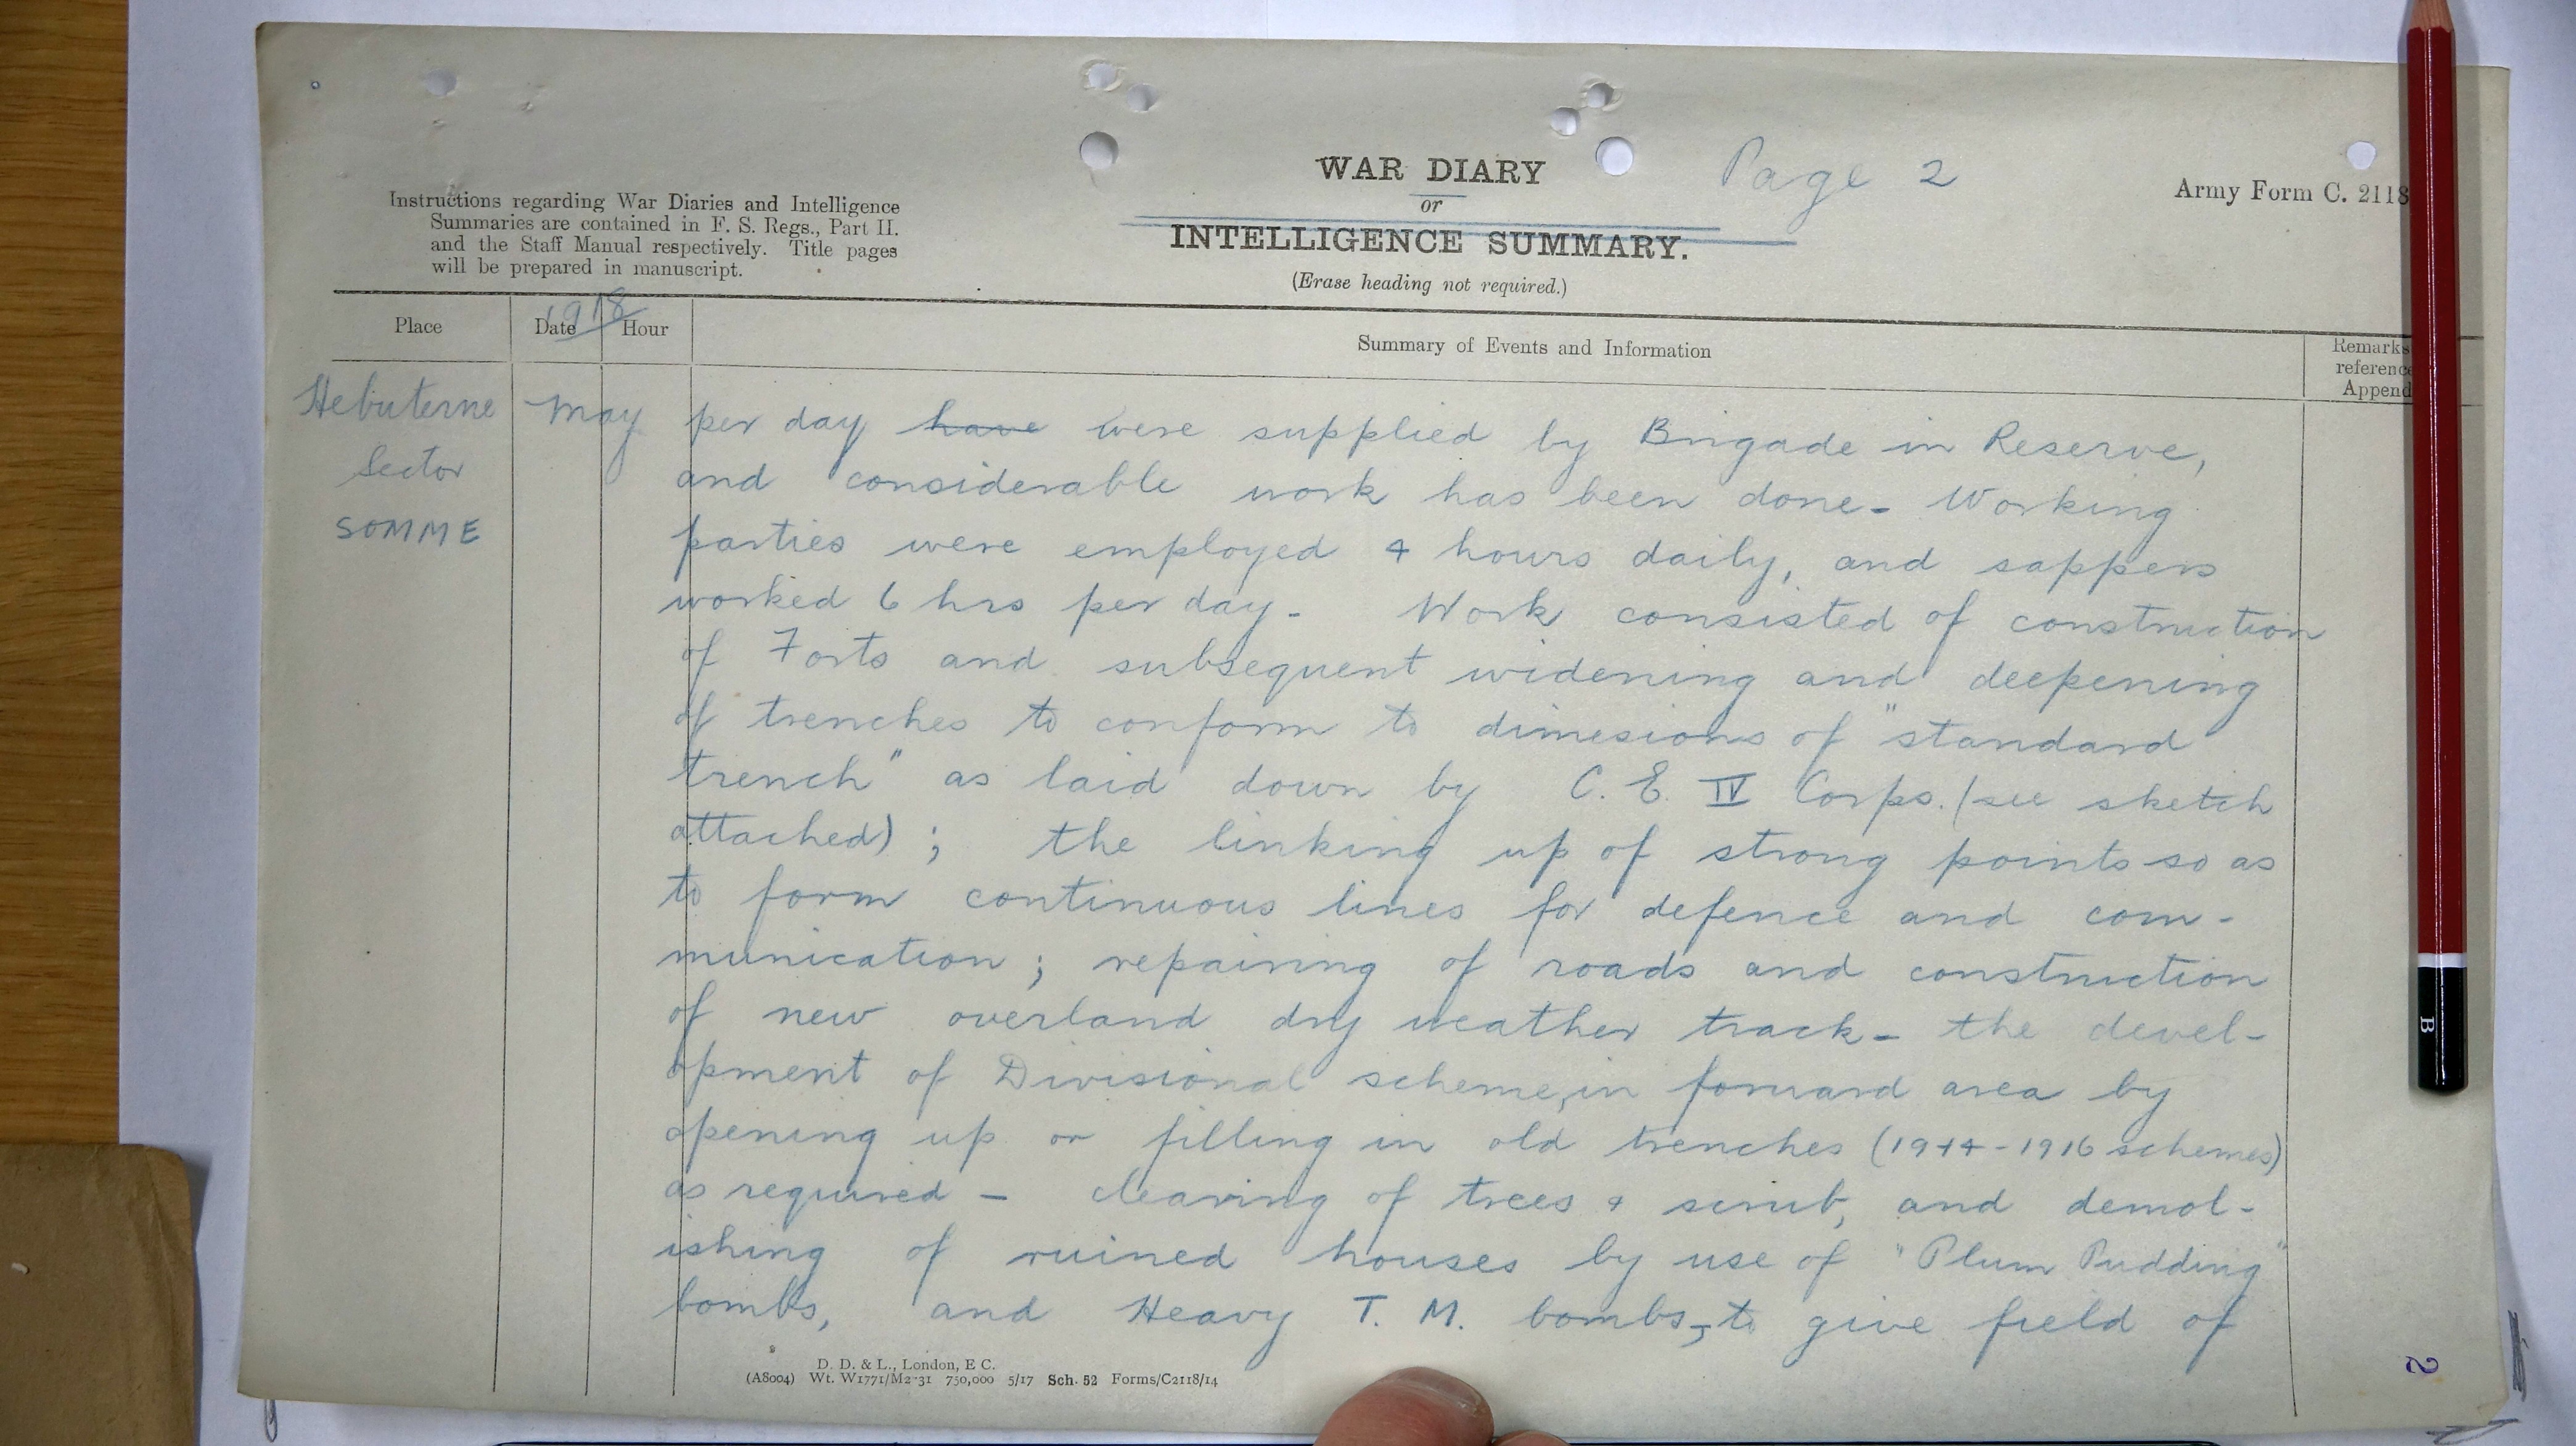 WAR DIARY
or
INTELLIGENCE SUMMARY.
(Erase heading not required.)
Page 2
Army Form C. 2118
Instructions regarding War Diaries and Intelligence
Summaries are contained in F. S. Regs., Part II.
and the Staff Manual respectively. Title pages
will be prepared in manuscript.
1918
Place Date Hour Summary of Events and Information Remarks
reference
Append
Hebuterne
Sector
SOMME
May
per day have were supplied by Brigade in Reserve,
and considerable work has been done - Working
parties were employed 4 hours daily, and sappers
worked 6 hrs per day - Work consisted of construction
of Forts and subsequent widening and deepening
of trenches to conform to dimesions of "standard
trench" as laid down by C. E. IV Corps. (see sketch
attached) ; the linking up of strong points so as
to form continuous lines for defence and com-
munication ; repairing of roads and construction
of new overland dry weather track - the devel-
opment of Divisional scheme, in forward area by
opening up or filling in old trenches (1914-1916 schemes)
as required - clearing of trees & scrub, and demol-
ishing of ruined houses by use of "Plum Pudding"
bombs, and Heavy T. M. bombs, to give field of
D. D. & L., London, E C.
(A8004) Wt. W1771/M2-31 750,000 5/17 Sch. 52 Forms/C2118/14
2
B